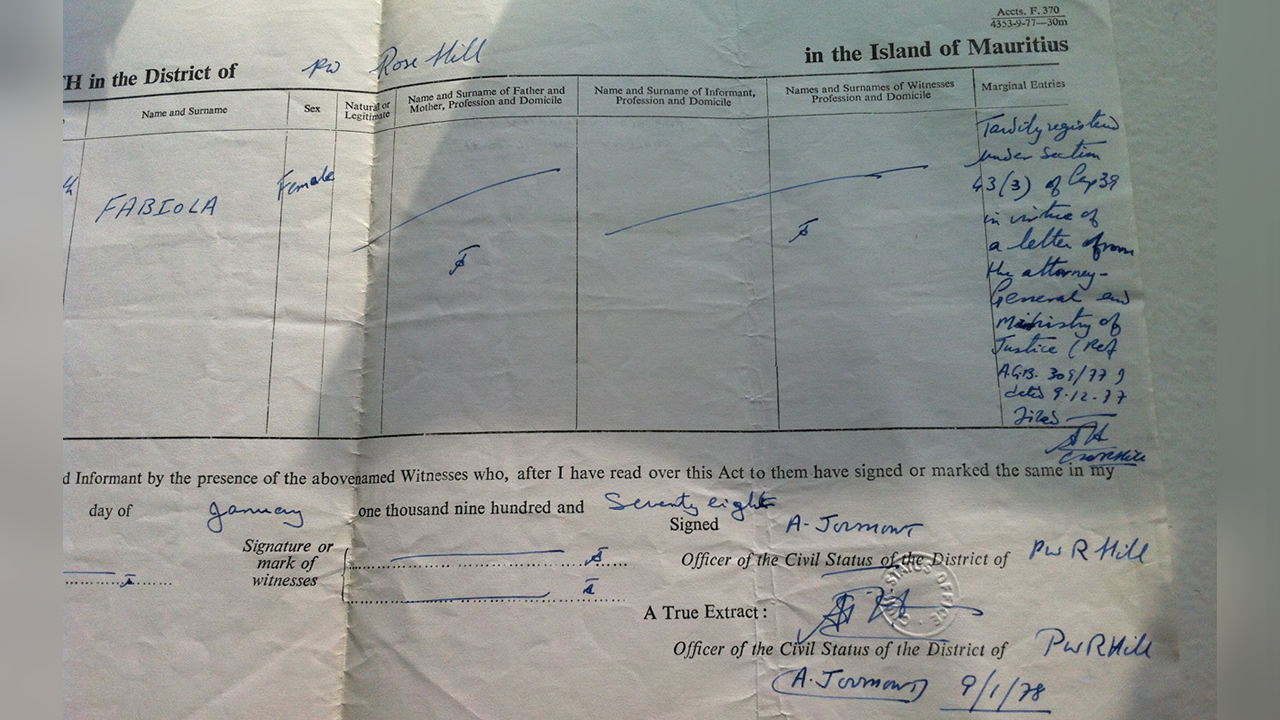 Accts. F. 370
4353-9-77—30m
H in the District of PW Rose Hill in the Island of Mauritius
Name and Surname
Sex
Natural or
Legitimate
Name and Surname of Father and
Mother, Profession and Domicile
Name and Surname of Informant,
Profession and Domicile
Names and Surnames of Witnesses
Profession and Domicile
Marginal Entries
FABIOLA
Female
Tardily registered
under Section
43(3) of Cap 39
in virtue of
a letter from
the attorney-
General and
Ministry of
Justice (Ref
A.G.B. 309/77)
dated 9-12-77
Filed
d Informant by the presence of the abovenamed Witnesses who, after I have read over this Act to them have signed or marked the same in my
day of January one thousand nine hundred and Seventy eight
Signed
Signature or
mark of
witnesses
Officer of the Civil Status of the District of PW R Hill
CIVIL STATUS OFFICE
A True Extract :
Officer of the Civil Status of the District of PW R Hill
9/1/78